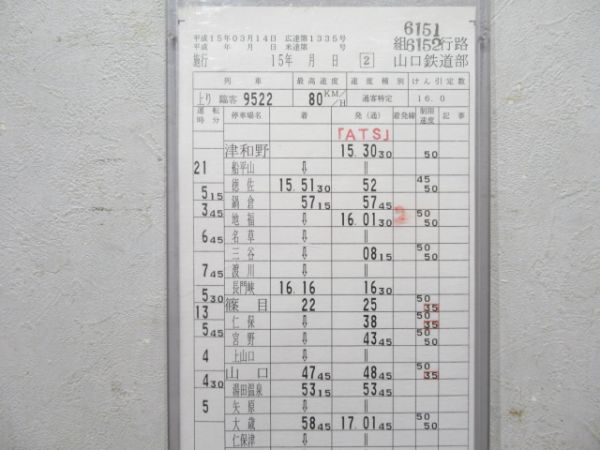 6151
平成15年03月14日 広運第1335号
組6152行路
平成 年 月 日 米運第 号
施行 15年 月 日 2 山口鉄道部
列車 最高速度 速度種別 けん引定数
上り 臨客 9522 80 KM/H 通客特定 16.0
運転時分 停車場名 着 発(通) 着発線 制限速度 記事
「ATS」
津和野 15.30 30 50
21 船平山 ⇩ ||
徳佐 15.51 30 52 45 50
5 15 鍋倉 57 15 57 45
3 45 地福 ⇩ 16.01 30 2 50 50
6 45 名草 ⇩ ||
三谷 ⇩ 08 15 50 50
7 45 渡川 ⇩ ||
長門峡 16.16 16 30
5 30 篠目 22 25 50 35
13 仁保 ⇩ 38 50 35
5 45 宮野 ⇩ 43 45 50 50
4 上山口 ⇩ ||
山口 47 45 48 45 50 35
4 30 湯田温泉 53 15 53 45
5 矢原 ⇩ ||
大歳 58 45 17.01 45 50 50
仁保津 ⇩ ||